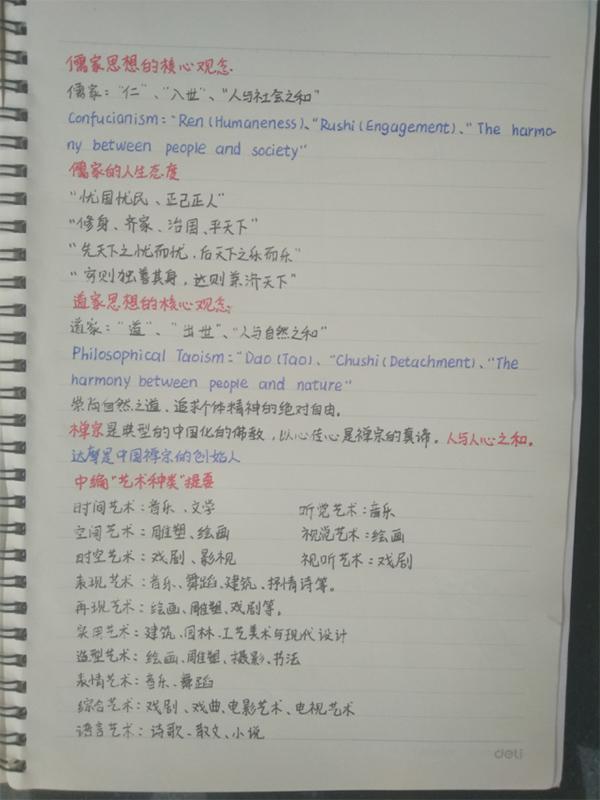 儒家思想的核心观念
儒家："仁"、"入世"、"人与社会之和"
Confucianism："Ren (Humaneness)、"Rushi (Engagement)、"The harmo-
ny between people and society"
儒家的人生态度
"忧国忧民、正己正人"
"修身、齐家、治国、平天下"
"先天下之忧而忧，后天下之乐而乐"
"穷则独善其身，达则兼济天下"
道家思想的核心观念
道家："道"、"出世"、"人与自然之和"
Philosophical Taoism："Dao (Tao)、"Chushi (Detachment)、"The
harmony between people and nature"
崇尚自然之道、追求个体精神的绝对自由。
禅宗是典型的中国化的佛教，以心传心是禅宗的真谛。人与人心之和。
达摩是中国禅宗的创始人
中编"艺术种类"提要
时间艺术：音乐、文学 听觉艺术：音乐
空间艺术：雕塑、绘画 视觉艺术：绘画
时空艺术：戏剧、影视 视听艺术：戏剧
表现艺术：音乐、舞蹈、建筑、抒情诗等。
再现艺术：绘画、雕塑、戏剧等。
实用艺术：建筑、园林、工艺美术与现代设计
造型艺术：绘画、雕塑、摄影、书法
表情艺术：音乐、舞蹈
综合艺术：戏剧、戏曲、电影艺术、电视艺术
语言艺术：诗歌、散文、小说
deli